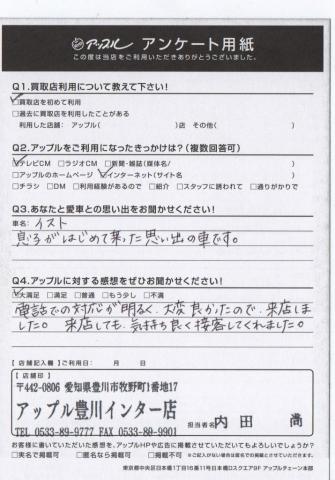 アップル アンケート用紙
この度は当店をご利用いただきありがとうございました。
Q1.買取店利用について教えて下さい!
□買取店を初めて利用
□過去に買取店を利用したことがある
利用した店舗: アップル( )店 その他( )
Q2.アップルをご利用になったきっかけは?(複数回答可)
□テレビCM □ラジオCM □新聞・雑誌(媒体名/ )
□アップルのホームページ □インターネット(サイト名 )
□チラシ □DM □利用経験があるので □紹介 □スタッフに誘われて □通りがかりで
Q3.あなたと愛車との思い出をお聞かせください!
車名: イスト
息子がはじめて乗った思い出の車です。
Q4.アップルに対する感想をぜひお聞かせください!
□大満足 □満足 □普通 □もう少し □不満
電話での対応が明るく、大変良かったので、来店しま
した。 来店しても、気持ち良く接客してくれました。
【店舗記入欄】ご利用日: 月 日
【店舗印】
〒442-0806 愛知県豊川市牧野町1番地17
アップル豊川インター店
TEL 0533-89-9777 FAX 0533-89-9901
担当者名 内田 尚
お客様に書いていただいた感想を、アップルHPや広告に掲載させていただいてもよろしいでしょうか?
□実名で掲載可 □匿名なら掲載可 □掲載不可 ※ご記入がない場合は匿名での掲載とさせていただきます。
東京都中央区日本橋1丁目16番11号日本橋Dスクエア9F アップルチェーン本部